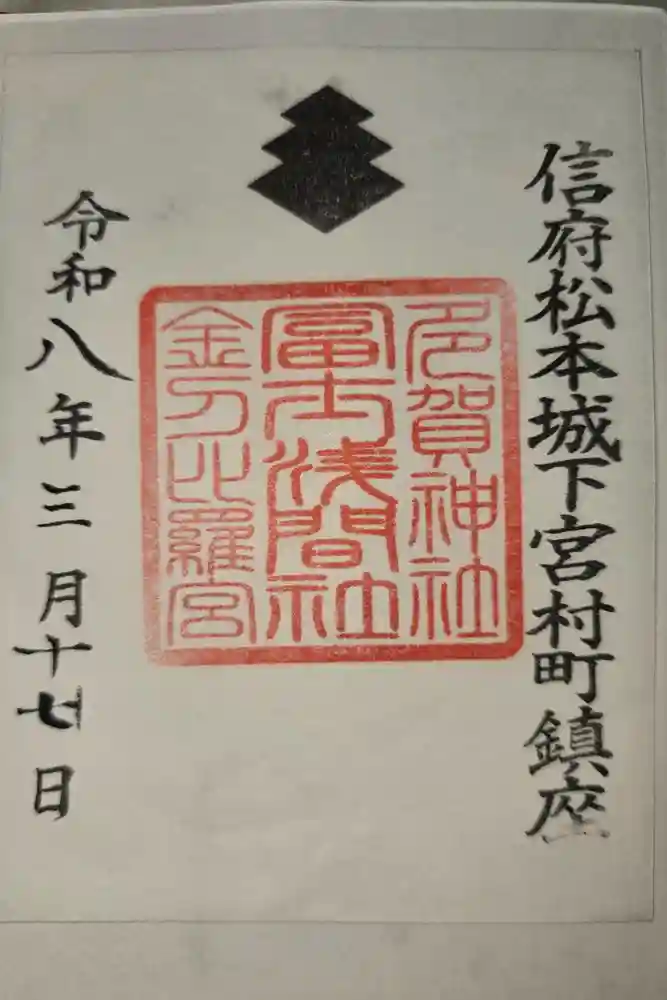 信府松本城下宮村町鎮座
多賀神社
富士浅間社
金刀比羅宮
令和八年三月十七日